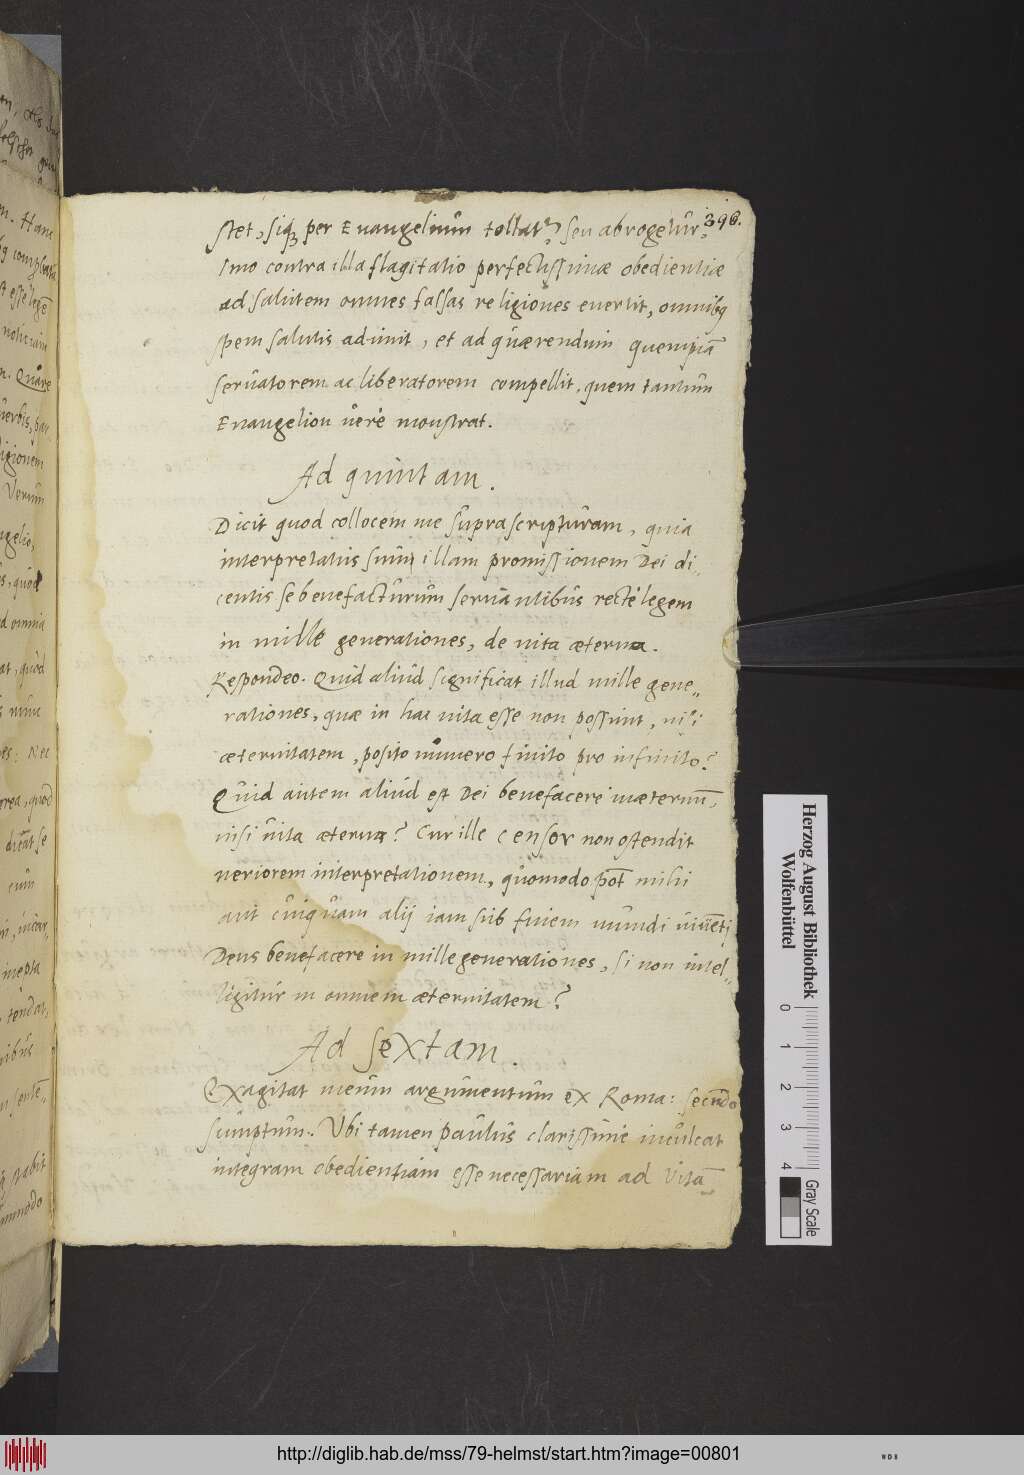 396.
stet, siq₃ per Evangeliūm tollatr? seu abrogetūr?
Imo contra illa flagitatio perfectissimæ obedientiæ
ad salutem omnes falsas religiones evertit, omnibq
spem salutis adimit, et ad quærendum quempiā
servatorem ac liberatorem compellit, quem tantūm
Evangelion verè monstrat.
Ad quintam.
Dicit quod collocem me sūpra scripturam, quia
interpretatus sum illam promissionem Dei di„
centis se benefactūrūm servantibūs rectè legem
in mille generationes, de vita æterna.
Respondeo. Quid aliud significat illud mille gene„
rationes, quæ in hac vita esse non possunt, nisi
æternitatem, posito nūmero finito pro infinito?
Quid autem aliud est Dei benefacere in æternū,
nisi vita æterna? Cur ille censor non ostendit
veriorem interpretationem, quomodo pōt mihi
aut cuiquam alij iam sūb finem mundi vivēti
Deus benefacere in mille generationes, si non intel„
ligitūr in omnem æternitatem?
Ad sextam.
Exagitat meūm argumentūm ex Roma: secūdo
sūmptūm. Ubi tamen paulūs clarissimè inculcat
integram obedientiam esse necessariam ad vitā
Hanc
esse legē
noticiam
Quare
ligionem
Verūm
quod
omnia
quod
nunc
Nec
quod
se
cūm
inepta
stabit
Herzog August Bibliothek
Wolfenbüttel
0 1 2 3 4
Gray Scale
http://diglib.hab.de/mss/79-helmst/start.htm?image=00801
WDB